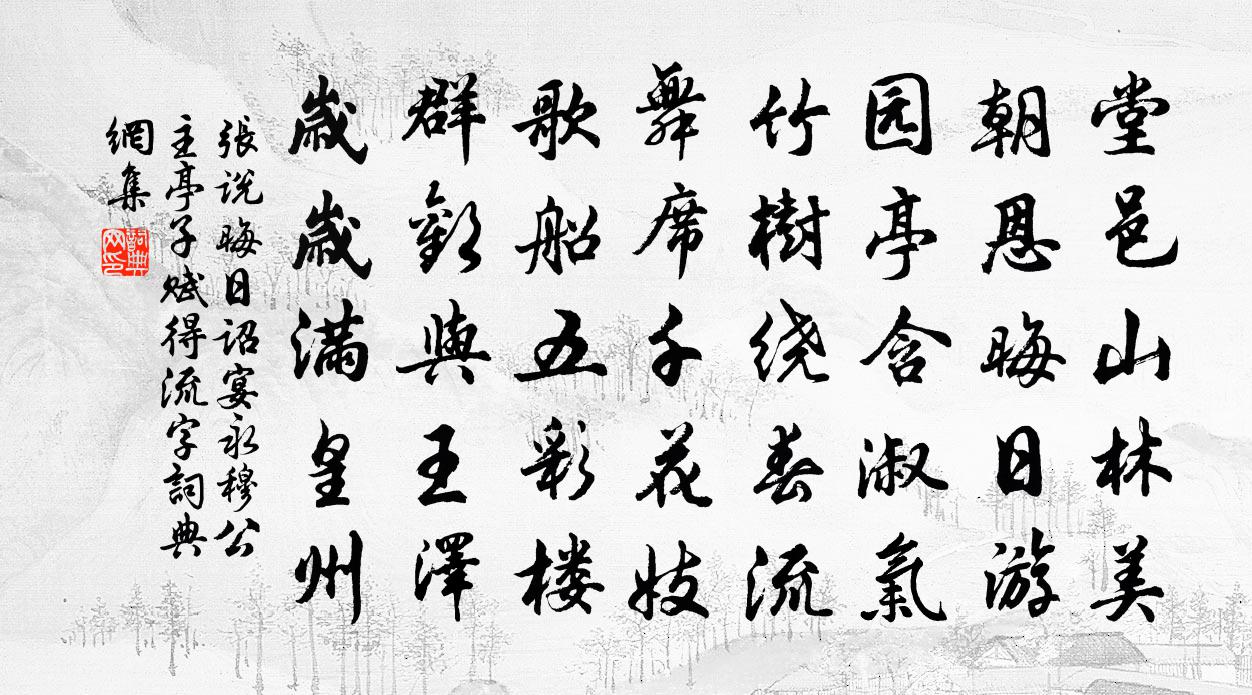 堂邑山林美
朝恩晦日游
园亭含淑氣
竹樹绕春流
舞席千花妓
歌船五彩楼
群歡與王澤
歲歲滿皇州
張説晦日詔宴永穆公
主亭子赋得流字詞典
網集
詞典
网印